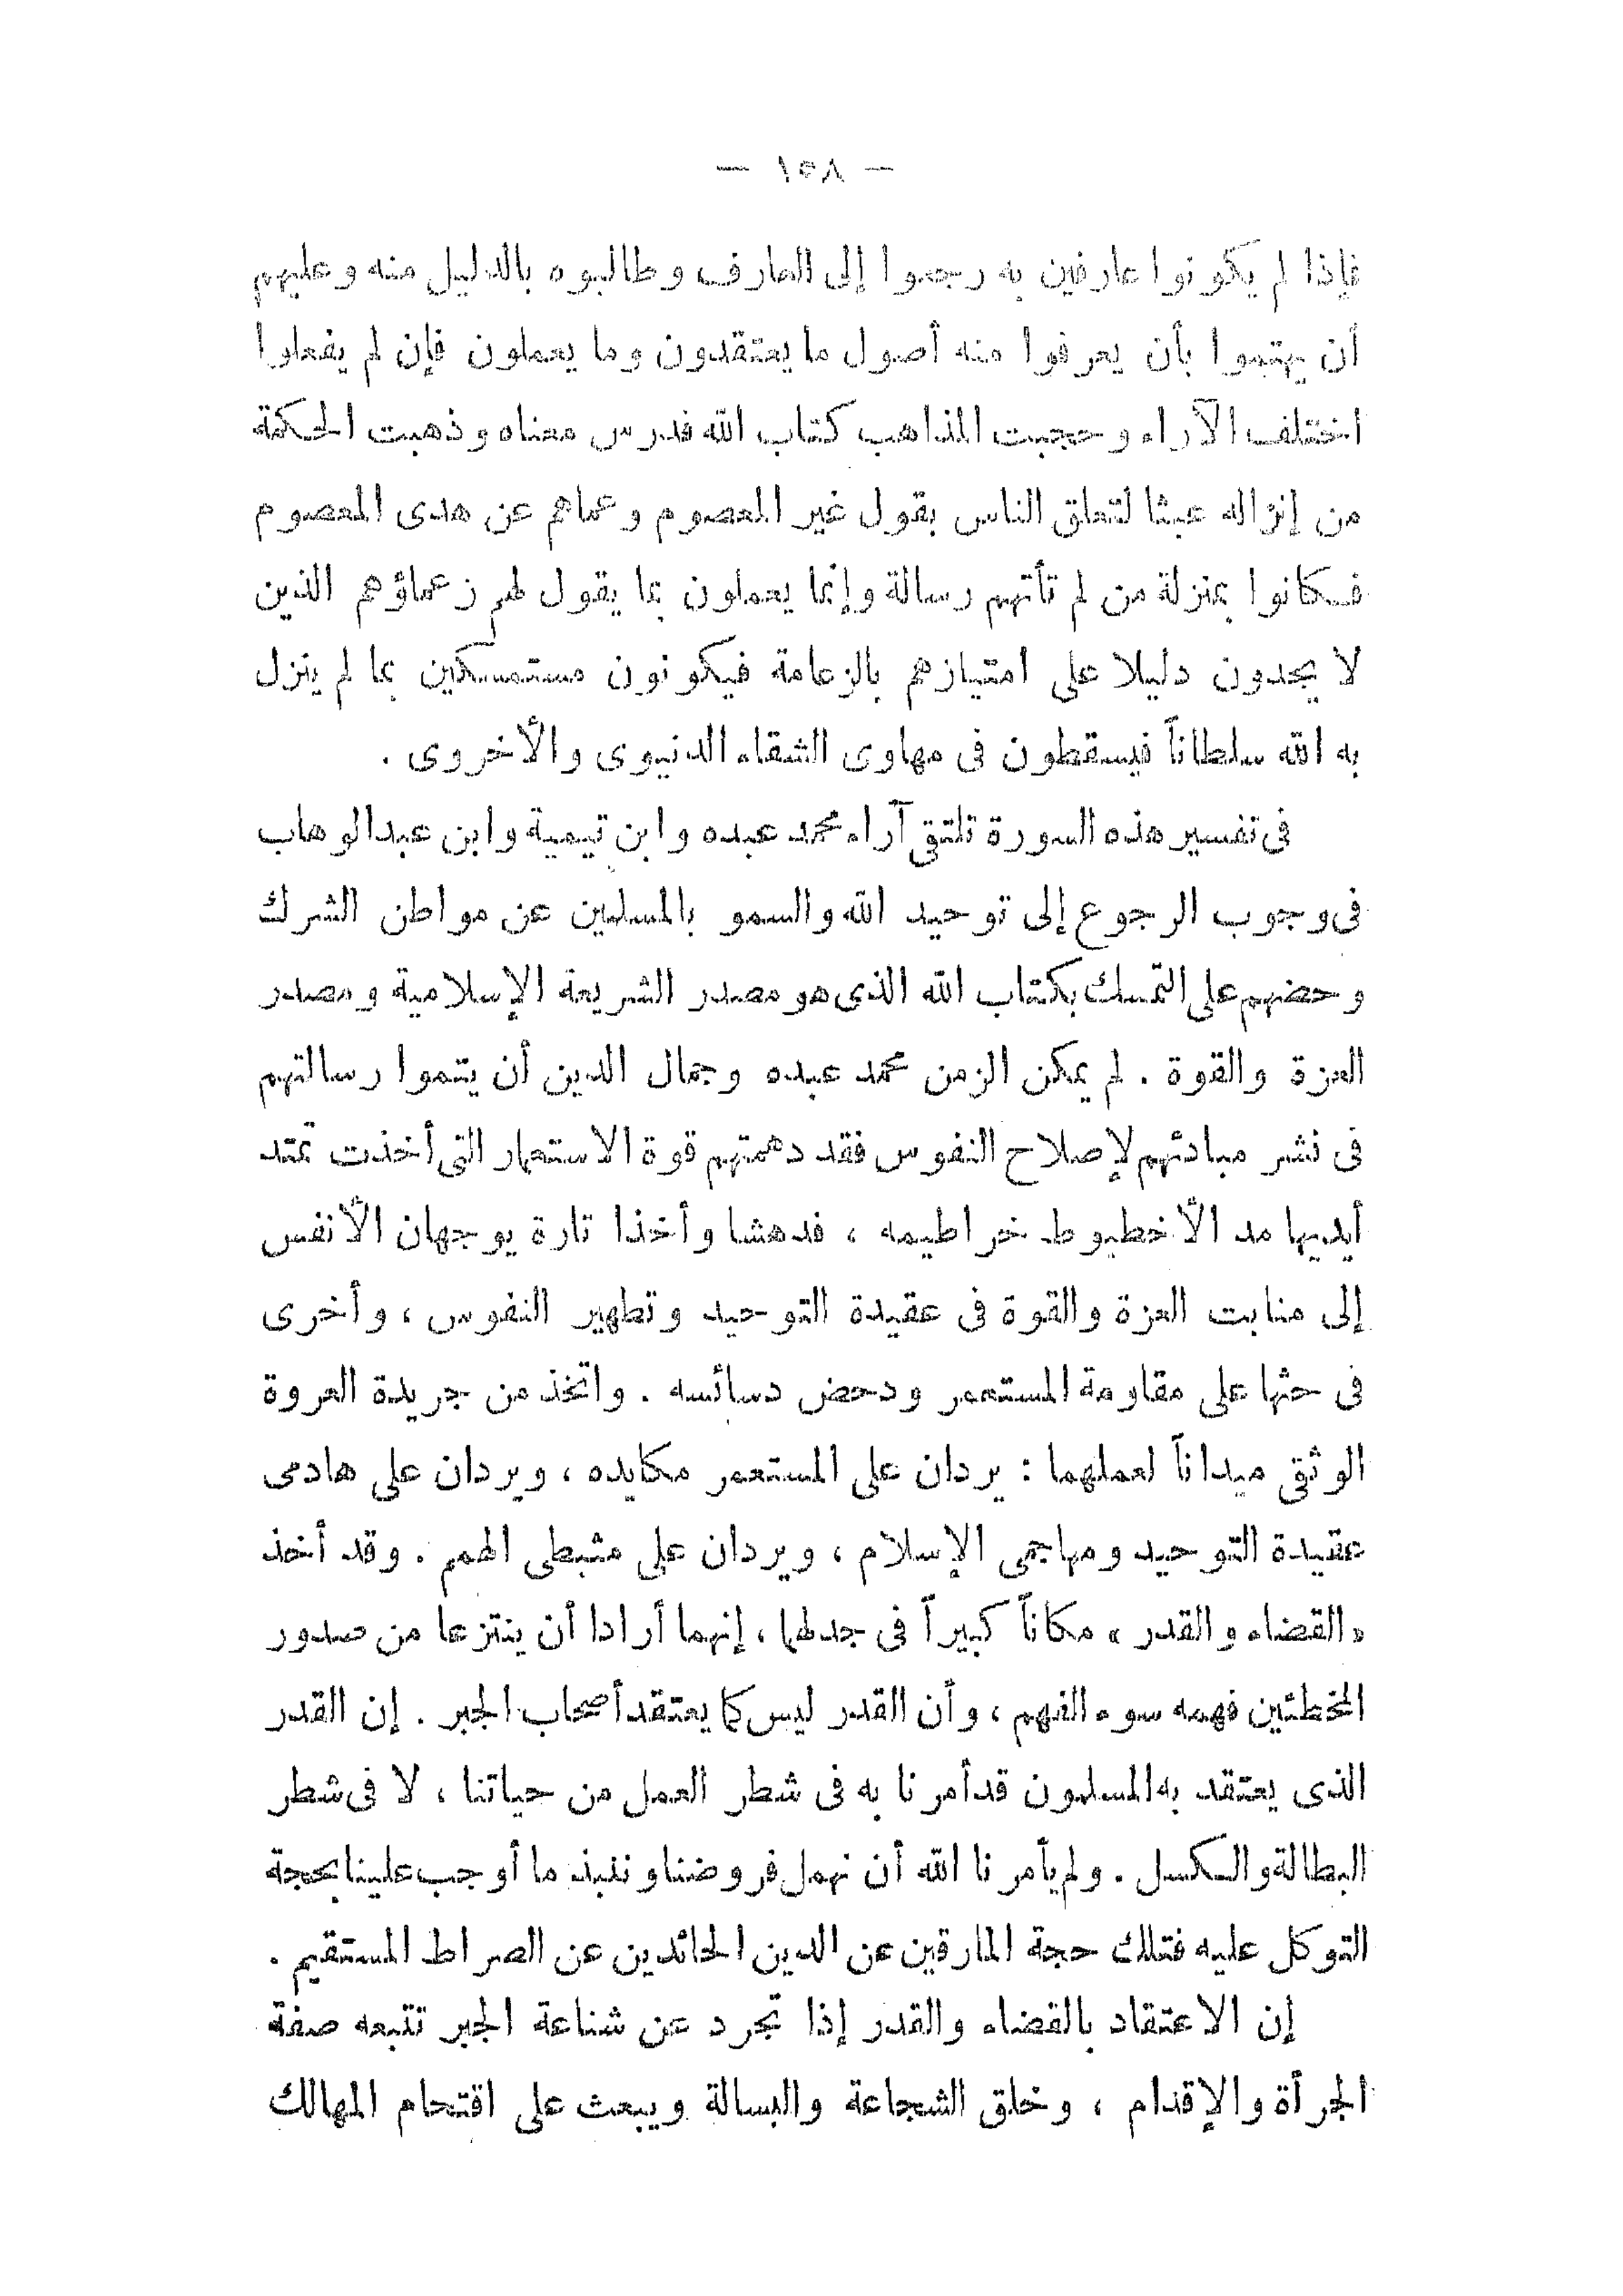 — ١٥٨ —
فإذا لم يكونوا عارفين به رجعوا إلى العارف وطالبوه بالدليل منه وعليهم
أن يهتموا بأن يعرفوا منه أصول ما يعتقدون وما يعملون فإن لم يفعلوا
اختلف الآراء وحجبت المذاهب كتاب الله فدرس معناه وذهبت الحكمة
من إنزاله عبثا لتعلق الناس بقول غير المعصوم وعماهم عن هدى المعصوم
فكانوا بمنزلة من لم تأتهم رسالة وإنما يعملون بما يقول لهم زعماؤهم الذين
لا يجدون دليلا على امتيازهم بالزعامة فيكونون مستمسكين بما لم ينزل
به الله سلطاناً فيسقطون فى مهاوى الشقاء الدنيوى والأخروى .
فى تفسير هذه السورة تلتقى آراء محمد عبده وابن تيمية وابن عبدالوهاب
فى وجوب الرجوع إلى توحيد الله والسمو بالمسلمين عن مواطن الشرك
وحضهم على التمسك بكتاب الله الذى هو مصدر الشريعة الإسلامية ومصدر
العزة والقوة . لم يمكن الزمن محمد عبده وجمال الدين أن يتموا رسالتهم
فى نشر مبادئهم لإصلاح النفوس فقد دهمتهم قوة الاستعمار التى أخذت تمتد
أيديها مد الأخطبوط خراطيمه ، فدهشا وأخذا تارة يوجهان الأنفس
إلى منابت العزة والقوة فى عقيدة التوحيد وتطهير النفوس ، وأخرى
فى حثها على مقاومة المستعمر ودحض دسائسه . واتخذ من جريدة العروة
الوثقى ميداناً لعملهما : يردان على المستعمر مكايده ، ويردان على هادمى
عقيدة التوحيد ومهاجمى الإسلام ، ويردان على مثبطى الهمم . وقد أخذ
« القضاء والقدر » مكاناً كبيراً فى جدلهما ، إنهما أرادا أن ينتزعا من صدور
المخطئين فهمه سوء الفهم ، وأن القدر ليس كما يعتقد أصحاب الجبر . إن القدر
الذى يعتقد به المسلمون قد أمرنا به فى شطر العمل من حياتنا ، لا فى شطر
البطالة والكسل . ولم يأمرنا الله أن نهمل فروضنا وننبذ ما أوجب علينا بحجة
التوكل عليه فتلك حجة المارقين عن الدين الحائدين عن الصراط المستقيم .
إن الاعتقاد بالقضاء والقدر إذا تجرد عن شناعة الجبر تتبعه صفة
الجرأة والإقدام ، وخلق الشجاعة والبسالة ويبعث على اقتحام المهالك